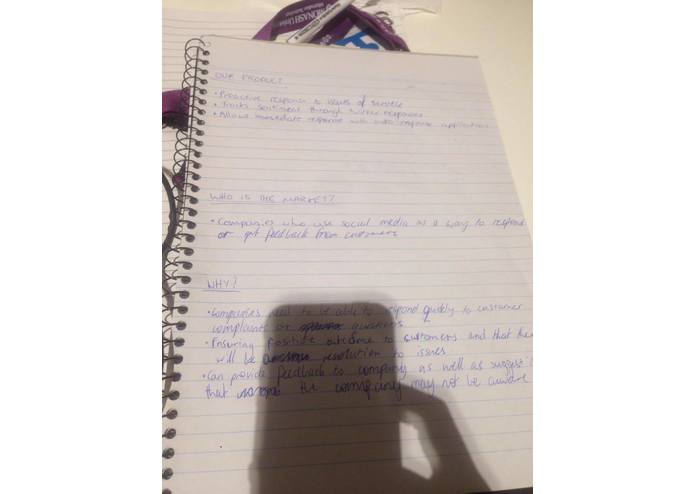 MONASH University
Information Technology
OUR PRODUCT
• Proactive response to issues of service
• Tracks sentiment through twitter responses
• Allows immediate response with auto response application
WHO IS THE MARKET?
• Companies who use social media as a way to respond
or get feedback from customers
WHY?
• Companies need to be able to respond quickly to customer
complaints or questions
• Ensuring positive outcome to customers and that there
will be resolution to issues
• Can provide feedback to company as well as suggest
that the company may not be aware